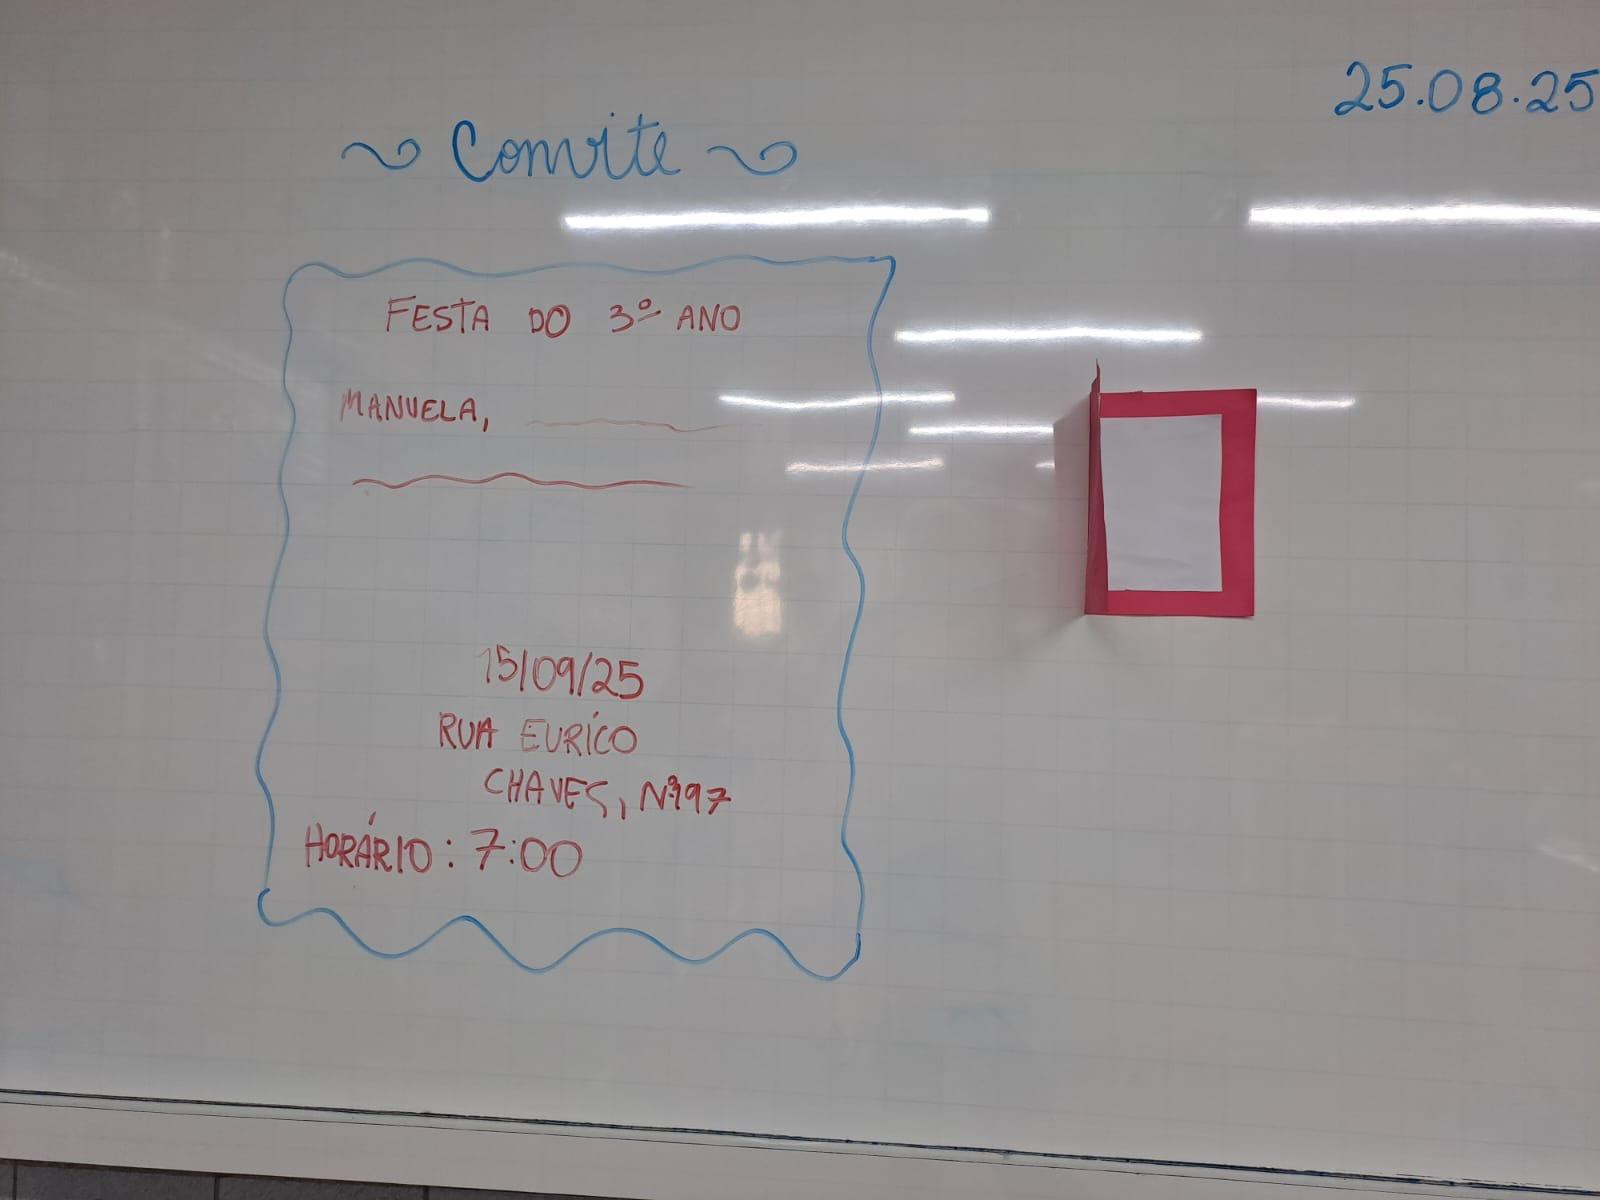 25.08.25
Convite
FESTA DO 3º ANO
MANUELA,
15/09/25
RUA EURÍCO
CHAVES, Nº197
HORÁRIO: 7:00